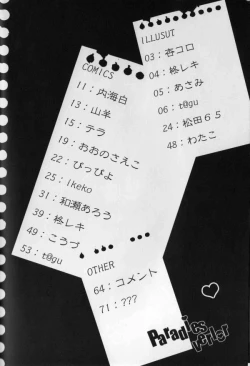 ILLUSUT
03:杏コロ
04:柊レキ
05:あさみ
06:t@gu
24:松田65
48:わたこ
COMICS
11:内海白
13:山羊
15:テラ
19:おおのさえこ
22:ぴっぴょ
25:ikeko
31:和瀬あろう
39:柊レキ
49:こうづ
53:t@gu
OTHER
64:コメント
71:???
Paradies